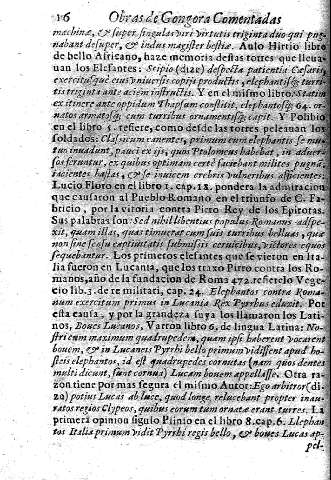 16 Obras de Gongora Comentadas
machinæ, & super singulas viri virtutis triginta duo qui pug-
nabant desuper, & indus magister bestiæ. Aulo Hirtio libro
de bello Africano, haze memoria destas torres que lleua-
uan los Elefantes: Scipio (dize) despecta patientia Cæsaris
exercituque eius vniuersis copijs productis, elephantisque turri-
tis triginta ante aciem instructis. Y en el mismo libro. Statim
ex itinere ante oppidum Thapsum constitit, elephantosque 64. or-
natos armatosque, cum turribus ornamentisque capit. Y Polibio
en el libro 5. refiere, como desde las torres peleauan los
soldados: Classicum canentes, primum cum elephantis se mu-
tuo inuadunt, pauci ex ijs, quos Ptolomæus habebat, in aduer-
sos feruntur, ex quibus optimam certè faciebant milites pugnã,
iacientes hastas, & se inuicem crebris vulneribus afficientes.
Lucio Floro en el libro 1. cap. 18. pondera la admiracion
que causaron al Pueblo Romano en el triunfo de C. Fa-
bricio, por la vitoria contra Pirro Rey de los Epirotas.
Sus palabras son: Sed nihil libentius populus Romanus aspe-
xit, quam illas, quas timuerat cum suis turribus belluas, quæ
non sine sensu captiuitatis submissis ceruicibus, victores equos
sequebantur. Los primeros elefantes que se vieron en Ita-
lia fueron en Lucania, que los traxo Pirro contra los Ro-
manos, año de la fundacion de Roma 472. refierelo Vege-
cio lib. 3. de re militari, cap. 24. Elephantos contra Roma-
num exercitum primus in Lucania Rex Pyrrhus eduxit. Por
esta causa, y por la grandeza suya los llamaron los Lati-
nos, Boues Lucanos, Varron libro 6. de lingua Latina: No-
stri enim maximum quadrupedem, quam ipsi haberent vocarent
bouem, & in Lucaneis Pyrrhi bello primum vidissent apud ho-
steis elephantos, id est quadrupedes cornutas (nam quos dentes
multi dicunt, sunt cornua) Lucam bouem appellasse. Otra ra-
zon tiene por mas segura el mismo Autor: Ego arbitror (di-
ze) potius Lucas ab luce, quod longe relucebant propter inau-
ratos regios Clypeos, quibus eorum tum ornatæ erant turres. La
primera opinion siguio Plinio en el libro 8. cap. 6. Elephan
tos Italia primum vidit Pyrrhi regis bello, & boues Lucas ap-
pel-